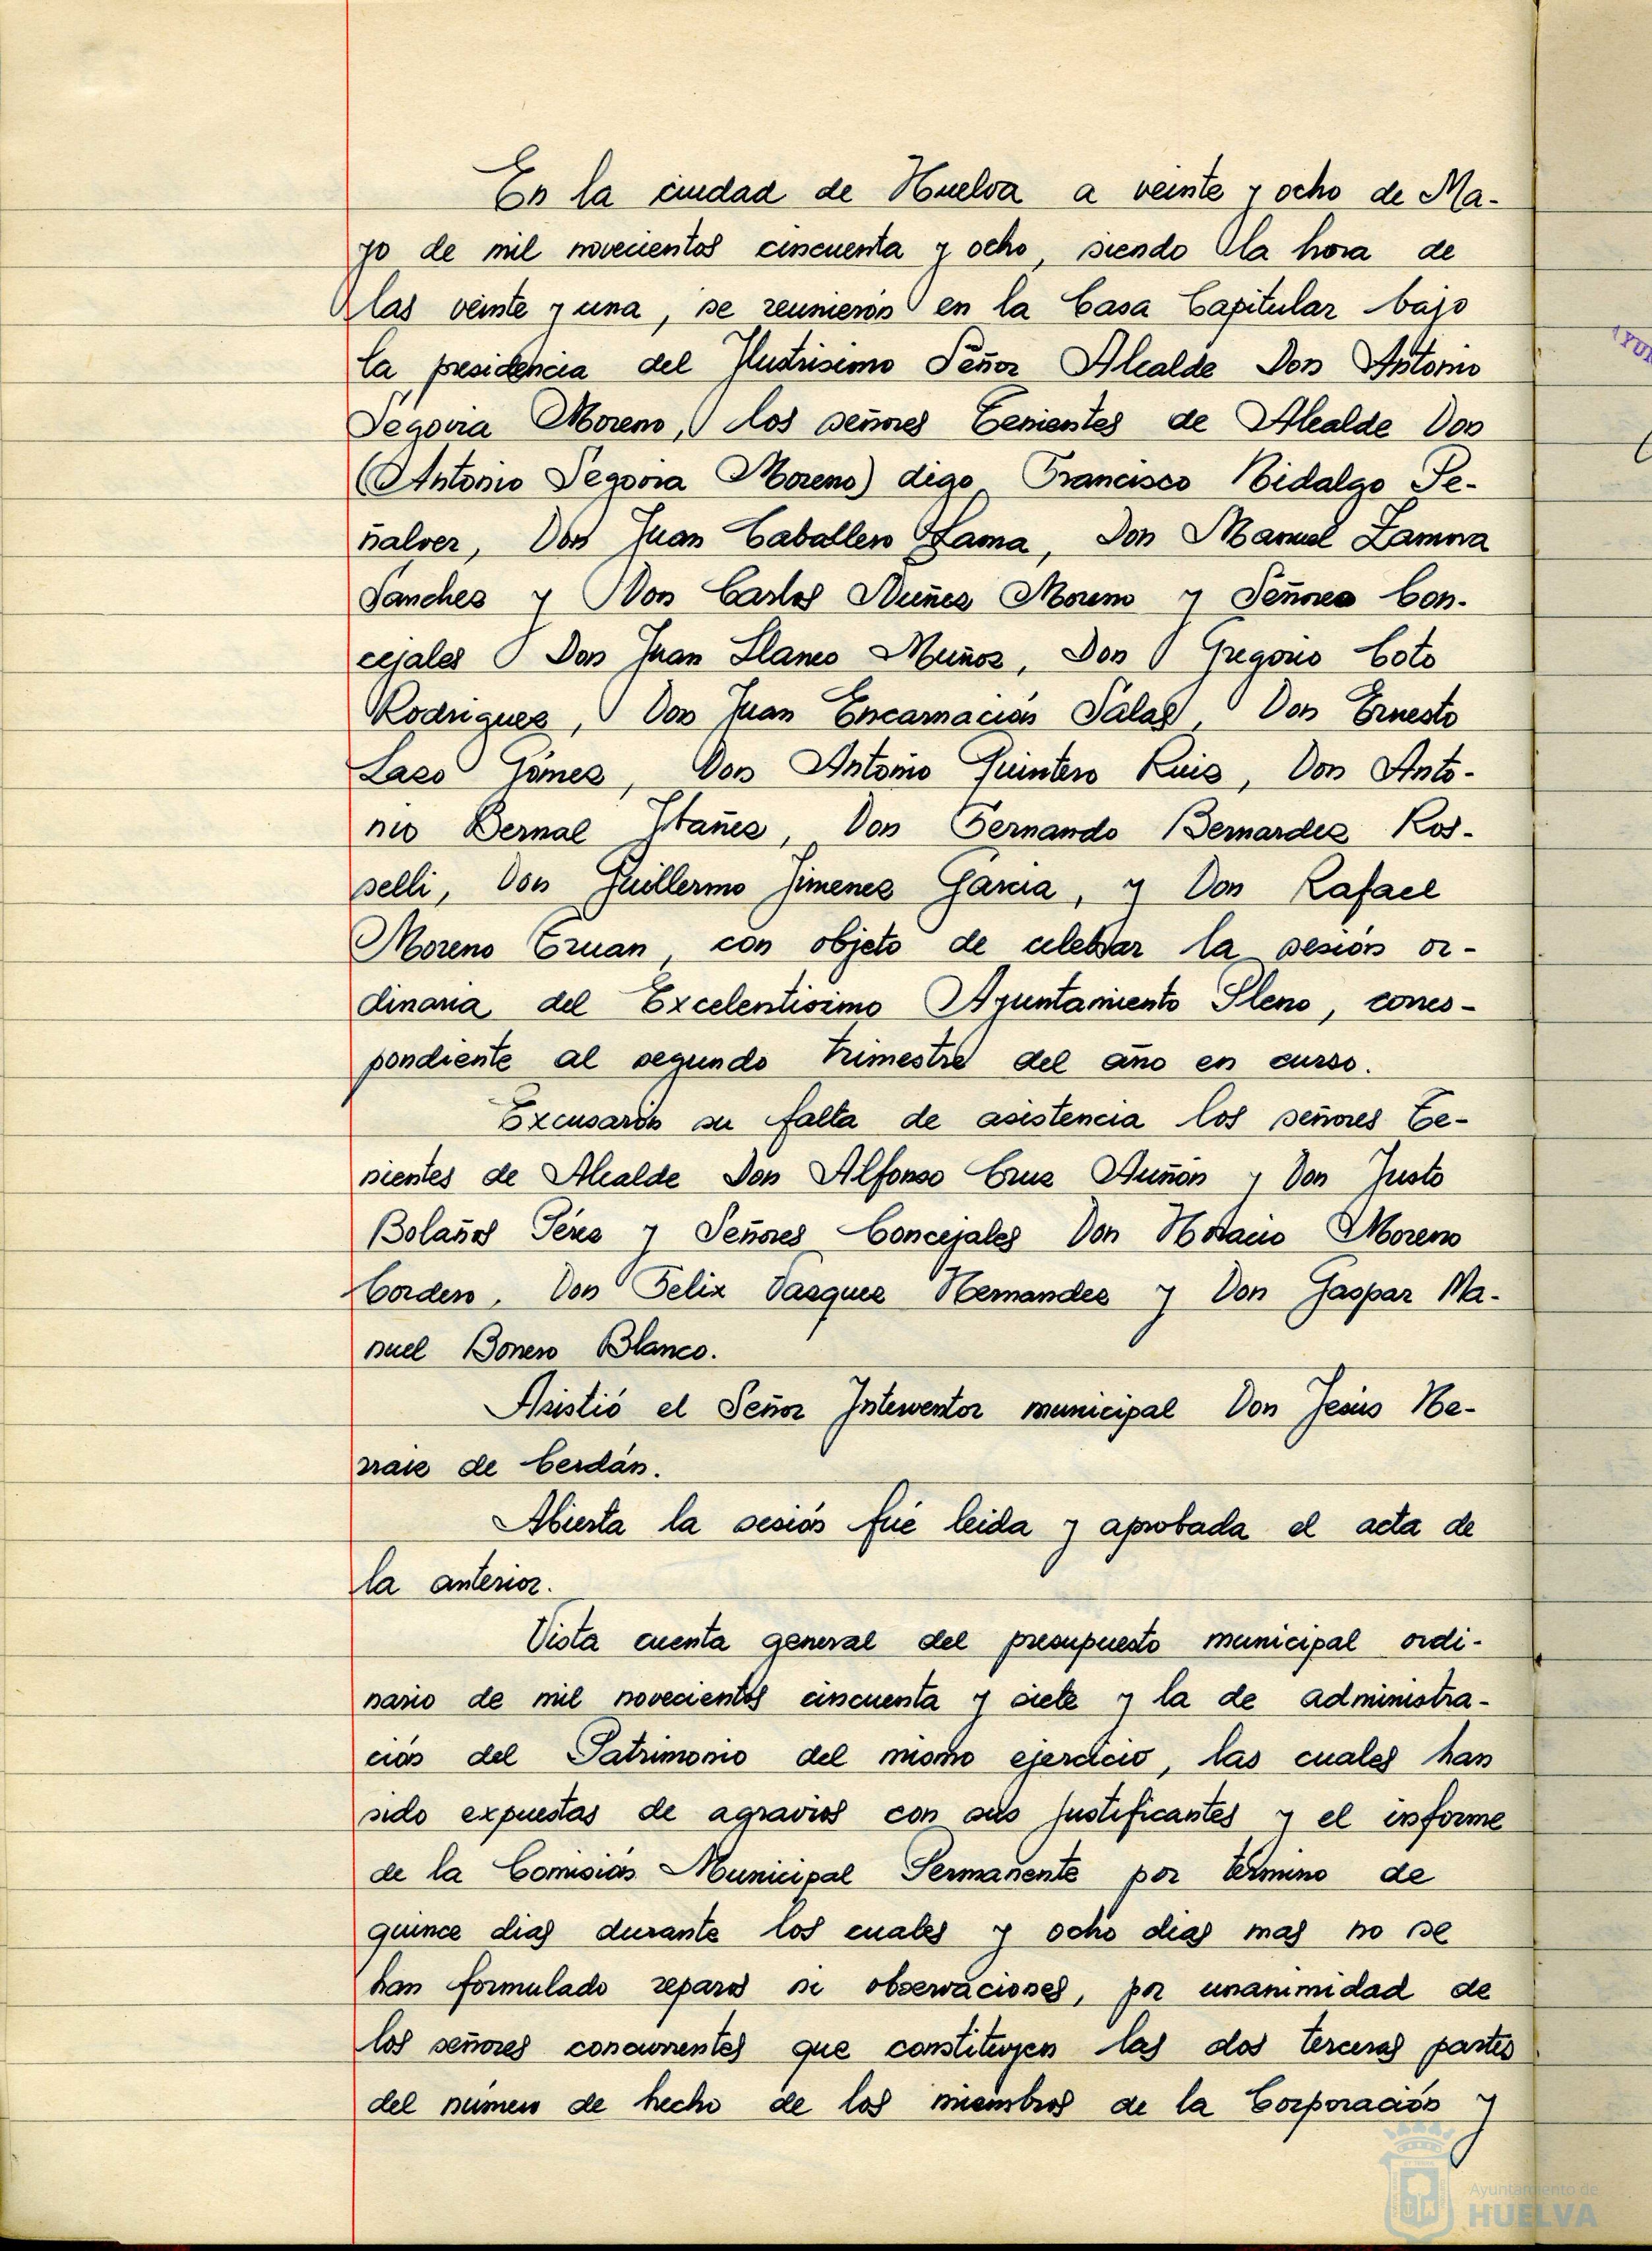 En la ciudad de Huelva a veinte y ocho de Ma-
yo de mil novecientos cincuenta y ocho, siendo la hora de
las veinte y una, se reunieron en la Casa Capitular bajo
la presidencia del Ilustrisimo Señor Alcalde Don Antonio
Segovia Moreno, los señores Tenientes de Alcalde Don
(Antonio Segovia Moreno) digo Francisco Hidalgo Pe-
ñalver, Don Juan Caballero Lama, Don Manuel Zamora
Sanchez y Don Carlos Nuñez Moreno y Señores Con-
cejales Don Juan Llanes Muñoz, Don Gregorio Coto
Rodriguez, Don Juan Encarnación Salas, Don Ernesto
Lazo Gómez, Don Antonio Quintero Ruiz, Don Anto-
nio Bernal Ibañez, Don Fernando Bernardez Ros-
selli, Don Guillermo Jimenez Garcia, y Don Rafael
Moreno Eruan, con objeto de celebrar la sesión or-
dinaria del Excelentisimo Ayuntamiento Pleno, corres-
pondiente al segundo trimestre del año en curso.
Excusarón su falta de asistencia los señores Te-
nientes de Alcalde Don Alfonso Cruz Auñon y Don Justo
Bolaños Pérez y Señores Concejales Don Horacio Moreno
Cordero, Don Felix Vazquez Hernandez y Don Gaspar Ma-
nuel Bonero Blanco.
Asistió el Señor Interventor municipal Don Jesús He-
rraiz de Cerdán.
Abierta la sesión fué leida y aprobada el acta de
la anterior.
Vista cuenta general del presupuesto municipal ordi-
nario de mil novecientos cincuenta y siete y la de administra-
ción del Patrimonio del mismo ejercicio, las cuales han
sido expuestas de agravios con sus justificantes y el informe
de la Comisión Municipal Permanente por termino de
quince dias durante los cuales y ocho dias mas no se
han formulado reparos ni observaciones, por unanimidad de
los señores concurrentes que constituyen las dos terceras partes
del número de hecho de los miembros de la Corporación y
Ayuntamiento de
HUELVA